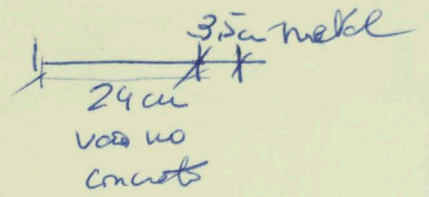 3,5cm metal
24 cm
vão no
concreto